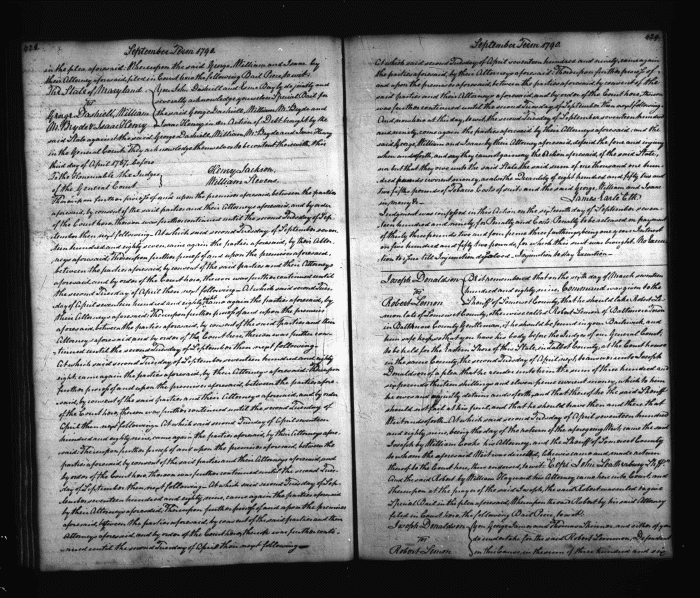 428
September Term 1790.
in the plea aforesaid. Whereupon the said George, William and Isaac by
their Attorney aforesaid, filed in Court here the following Bail Piece to wit:
The State of Maryland
vs
George Dashiell, William
McBryde & Isaac Henry
You John Dashiell and Esme Bayly do jointly and
severally acknowledge yourselves Special Bail for
the said George Dashiell, William McBryde and
Isaac Henry in an Action of Debt brought by the
said State against the said George Dashiell, William McBryde and Isaac Henry
in the General Court. They acknowledge themselves to be content herewith this
third day of April 1787. before
To the Honourable the Judges
of the General Court
Henry Jackson.
William Stevens.
Thereupon further process of and upon the premises aforesaid, between the parties
aforesaid, by consent of the said parties and their Attorneys aforesaid, and by order
of the Court here, thereon was further continued until the second Tuesday of Sep
tember then next following. At which said second Tuesday of September seven
teen hundred and eighty seven came again the parties aforesaid, by their Attor
neys aforesaid. Thereupon further process of and upon the premises aforesaid,
between the parties aforesaid, by consent of the said parties and their Attorneys
aforesaid, and by order of the Court here, thereon was further continued until
the second Tuesday of April then next following. At which said second Tues
day of April seventeen hundred and eighty eight came again the parties aforesaid, by
their Attorneys aforesaid. Thereupon further process of and upon the premises
aforesaid, between the parties aforesaid, by consent of the said parties and their
Attorneys aforesaid and by order of the Court here, thereon was further con
tinued until the second Tuesday of September then next following.
At which said second Tuesday of September seventeen hundred and eighty
eight, came again the parties aforesaid, by their Attorneys aforesaid. Thereupon
further process of and upon the premises aforesaid, between the parties afore
said, by consent of the said parties and their Attorneys aforesaid, and by order
of the Court here, thereon was further continued until the second Tuesday of
April then next following. At which said second Tuesday of April seventeen
hundred and eighty nine, came again the parties aforesaid, by their Attorneys afore
said. Thereupon further process of and upon the premises aforesaid, between the
parties aforesaid, by consent of the said parties and their Attorneys aforesaid, and
by order of the Court here, thereon was further continued until the second Tues
day of September then next following. At which said second Tuesday of Sep
tember seventeen hundred and eighty nine, came again the parties aforesaid
by their Attorneys aforesaid. Thereupon further process of and upon the premises
aforesaid, between the parties aforesaid, by consent of the said parties and their
Attorneys aforesaid and by order of the Court here, thereon was further conti
nued until the second Tuesday of April then next following.
429.
September Term 1790.
At which said second Tuesday of April seventeen hundred and ninety, came again
the parties aforesaid, by their Attorneys aforesaid. Thereupon further process of
and upon the premises aforesaid, between the parties aforesaid, by consent of the
said parties and their Attorneys aforesaid and by order of the Court here, thereon
was further continued until the second Tuesday of September then next following.
And now here at this day, to wit the second Tuesday of September seventeen hundred
and ninety, come again the parties aforesaid by their Attorneys aforesaid, and the
said George, William and Isaac by their Attorney aforesaid, defend the force and injury
when and so forth, and say they cannot gainsay the Action aforesaid of the said State,
nor but that they owe unto the said State the said sum of one thousand one hun
dred pounds current money, and also the quantity of eight hundred and fifty two and
two fifths pounds of Tobacco Costs of suit. and the said George, William and Isaac
in mercy &c.
James Earle Clk.
Judgment was confessed in this Action on the sixteenth day of September seven
teen hundred and ninety, for Penalty and Costs. Penalty to be released on payment
of thirty three pounds two and four pence three farthings, being one years Interest
on five hundred and fifty two pounds, for which this suit was brought. No Execu
tion to issue till Injunction dissolved. Injunction to stay Execution.
Joseph Donaldson
vs
Robert Lemon
Be it remembered that on the day of March seventeen
hundred and eighty nine, Command was given to the
Sheriff of Somerset County, that he should take Robert Le
mon late of Somerset County, otherwise called Robert Lemon of Baltimore Town
in Baltimore County Gentleman, if he should be found in your Bailiwick, and
him safe keep so that you have his body before the Judges of our General Court,
to be held for the Eastern Shore of the State, in Talbot County, at the Court house
in the same County, the second Tuesday of April next, to answer unto Joseph
Donaldson of a plea that he render unto him the sum of three hundred and
six pounds thirteen shillings and eleven pence current money, which to him
he owes and unjustly detains and so forth and that hereof he the said Sheriff
should not fail at his peril, and that he should have then and there that
Writ and so forth. At which said second Tuesday of April seventeen hundred
and eighty nine, being the day of the return of the aforegoing Writ, came the said
Joseph by William Cooke his Attorney, and the Sheriff of Somerset County
to whom the aforesaid Writ was directed, likewise came and made return
thereof to the Court here, thus endorsed, to wit: Cepi. John Leatherbury Shff.
And the said Robert by William Hayward his Attorney came here into Court and
Thereupon at the prayer of the said Joseph, the said Robert was ruled to give
Special Bail in the plea aforesaid. Whereupon the said Robert by his said Attorney
filed in Court here, the following Bail Piece, to wit:
Joseph Donaldson
vs
Robert Lemon
You George James and Thomas Brinnon and either of you
do undertake for the said Robert Lemon, Defendant
in this Cause, in the sum of three hundred and six